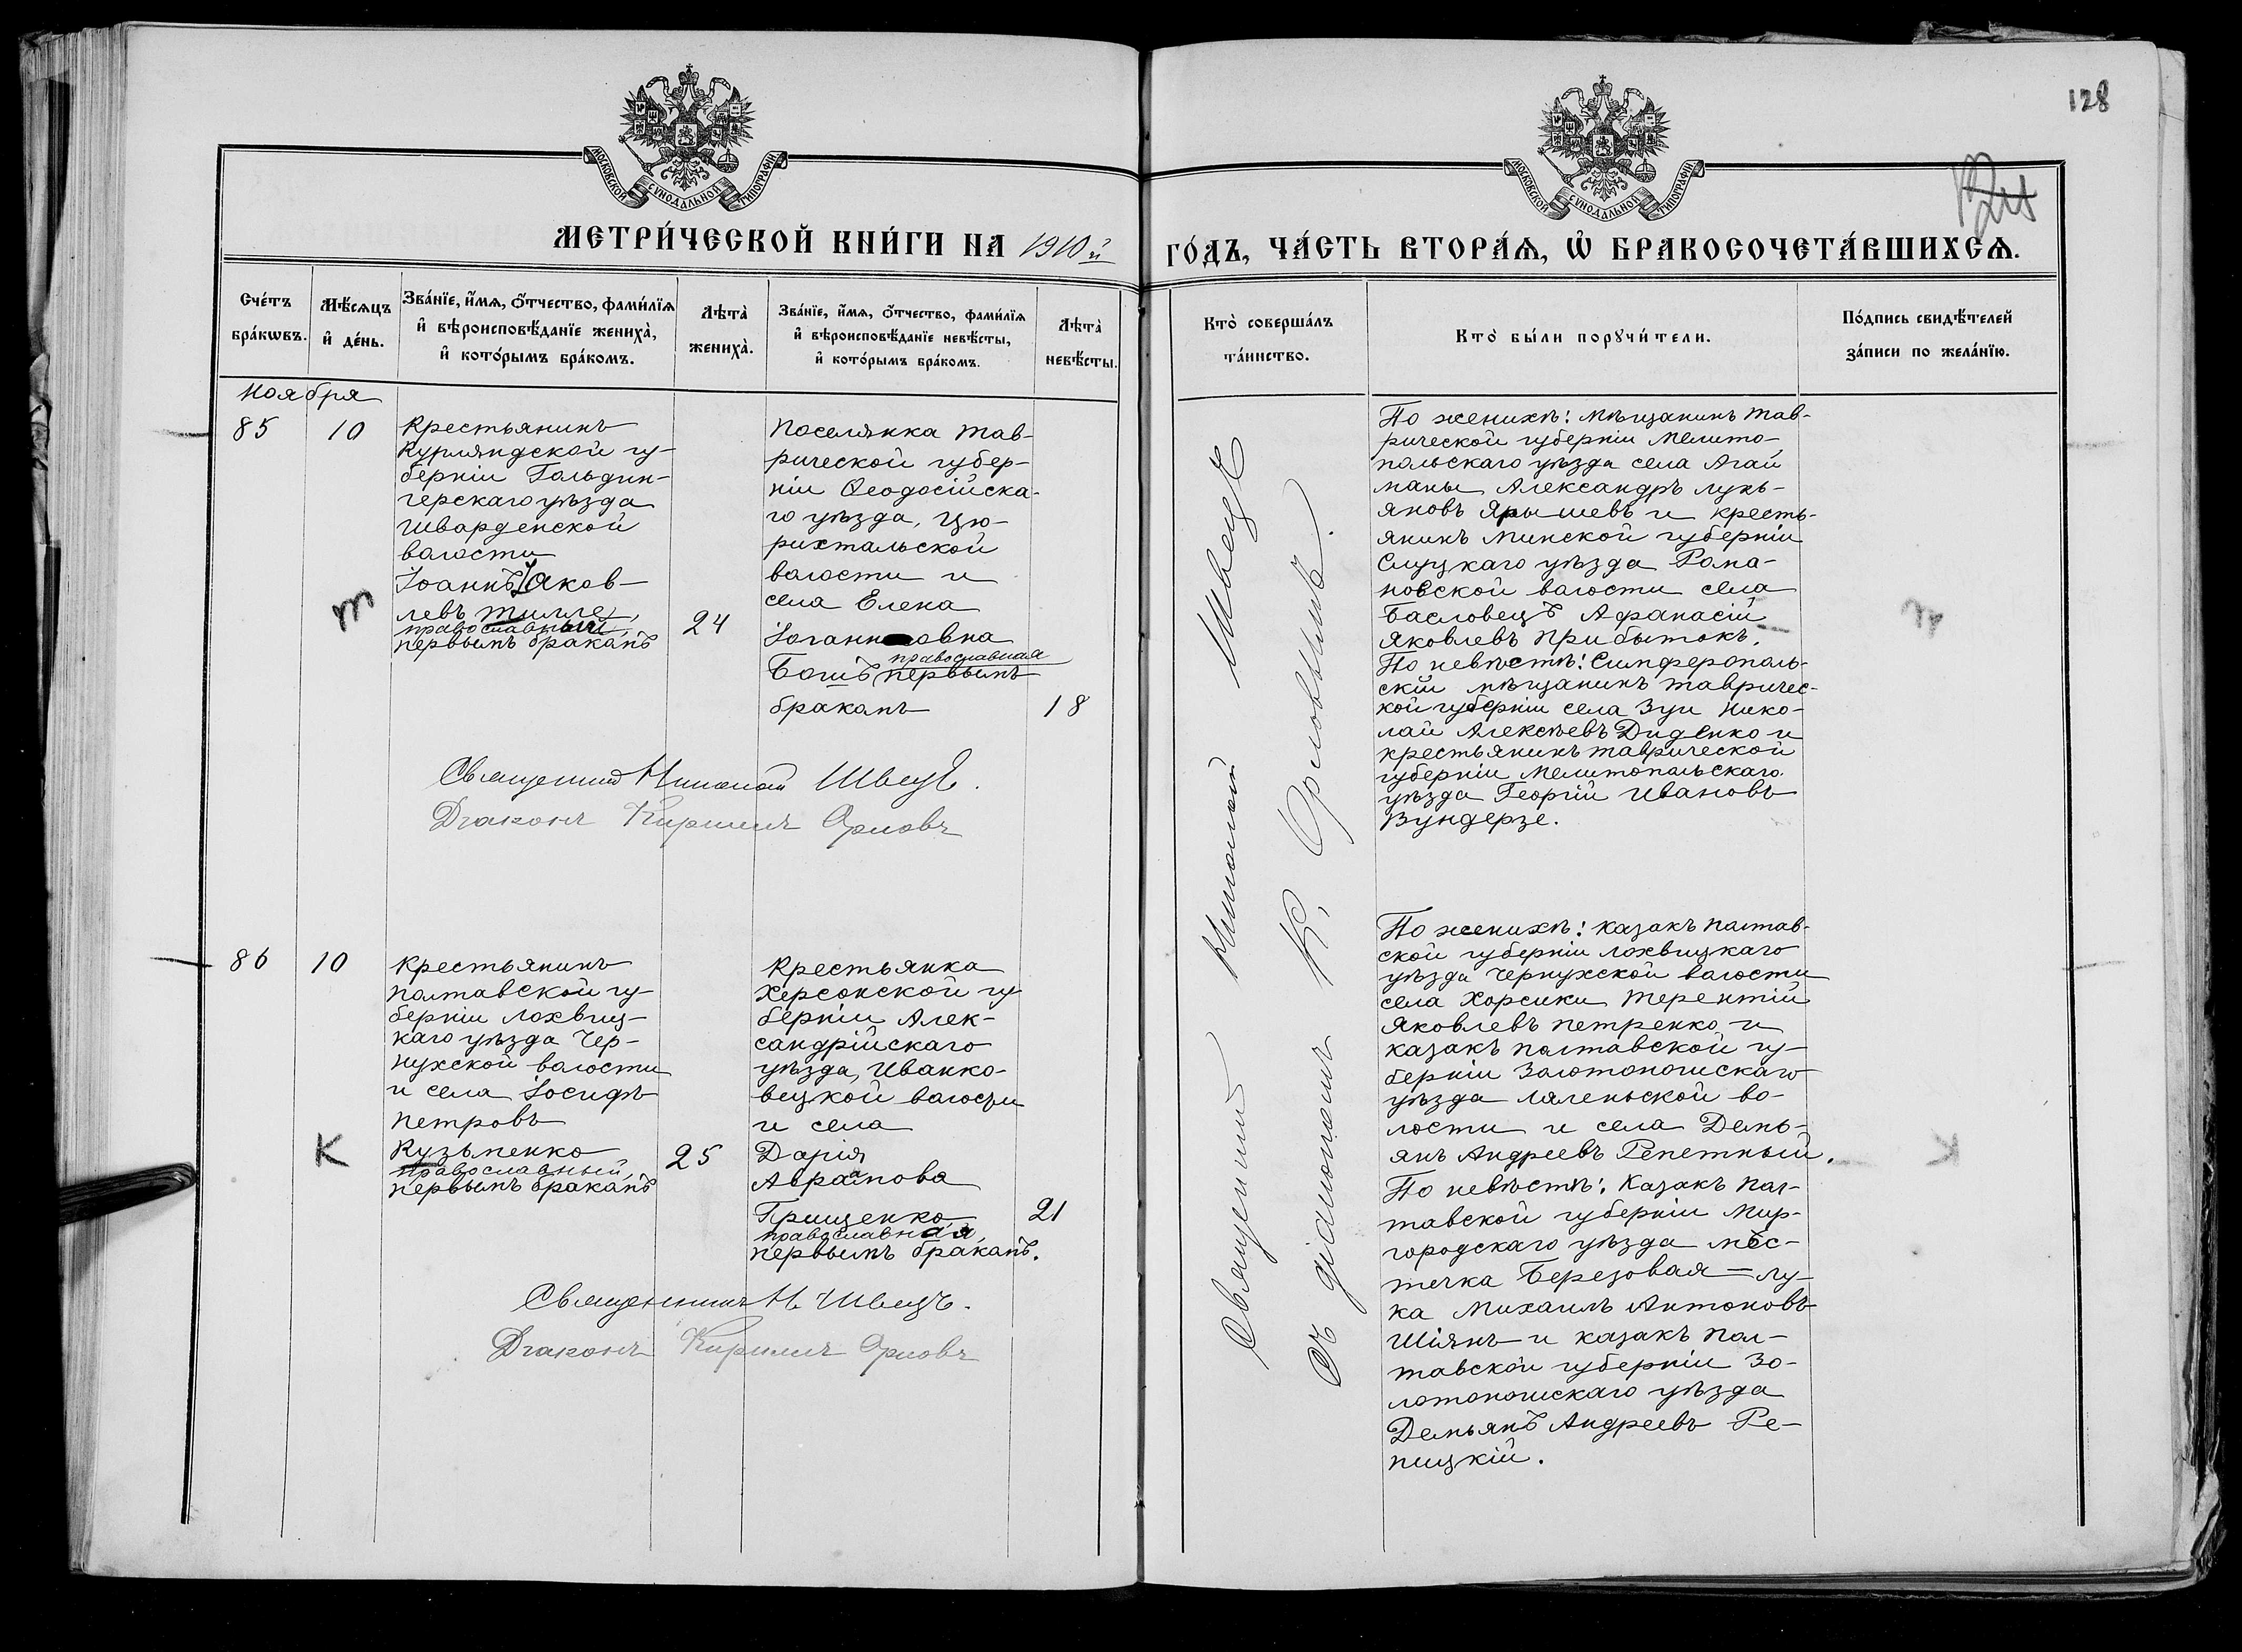 128
МОСКОВСКОЙ СѴНОДАЛЬНОЙ ТИПОГРАФІИ
МОСКОВСКОЙ СѴНОДАЛЬНОЙ ТИПОГРАФІИ
МЕТРИ́ЧЕСКОЙ КНИ́ГИ НА 1910й
ГО́ДЪ, ЧА́СТЬ ВТОРА́Ѧ, Ѡ҆ БРАКОСОЧЕТА́ВШИХСѦ.
Сче́тъ
бра́кѡвъ.
Мѣ́сѧцъ
и҆ де́нь.
Зва́нїе, и҆́мѧ, ѻ҆́тчество, фами́лїѧ
и҆ вѣроисповѣ́данїе жениха̀,
и҆ кото́рымъ бра́комъ.
Лѣта̀
жениха̀.
Зва́нїе, и҆́мѧ, ѻ҆́тчество, фами́лїѧ
и҆ вѣроисповѣ́данїе невѣ́сты,
и҆ кото́рымъ бра́комъ.
Лѣта̀
невѣ́сты.
Кто̀ соверша́лъ
та́инство.
Кто̀ бы́ли порꙋчи́тели.
По́дпись свидѣ́телей
за́писи по жела́нїю.
Ноября
85
10
Крестьянинъ
Курляндской гу-
берніи Гольдин-
герскаго уѣзда
Шварденской
волости
Іоаннъ Яков-
левъ Тилле,
православный,
первымъ бракомъ
24
Поселянка Тав-
рической губер-
ніи Ѳеодосійска-
го уѣзда, Цю-
рихтальской
волости и
села Елена
Іоганновна
православная
Бошъ первымъ
бракомъ
18
Священникъ Николай Швецъ.
Діаконъ Кириллъ Орловъ
Священникъ Николай Швецъ
съ діакономъ К. Орловымъ.
По женихѣ: мѣщанинъ Тав-
рической губерніи Мелито-
польскаго уѣзда села Агай
маны Александръ Лукь-
яновъ Ярышевъ и кресть-
янинъ Минской губерніи
Слуцкаго уѣзда Рома-
новской волости села
Басловецъ Афанасій
Яковлевъ Прибытокъ.
По невѣстѣ: Симферополь-
скій мѣщанинъ Тавричес-
кой губерніи села Зуи Нико-
лай Алексѣевъ Диденко и
крестьянинъ Таврической
губерніи Мелитопольскаго
уѣзда Георгій Ивановъ
Вундерзе.
т
86
10
Крестьянинъ
Полтавской гу-
берніи Лохвиц-
каго уѣзда Чер-
нухской волости
и села Іосифъ
Петровъ
Кузьменко
православный,
первымъ бракомъ
К
25
Крестьянка
Херсонской гу
берніи Алек-
сандрійскаго
уѣзда, Иванко-
вецкой волости
и села
Дарія
Аврамова
Грищенко,
православная,
первымъ бракомъ.
21
Священникъ Н. Швецъ.
Діаконъ Кириллъ Орловъ
По женихѣ: казакъ Полтав-
ской губерніи Лохвицкаго
уѣзда Чернухской волости
села Хорсики Терентій
Яковлевъ Петренко и
казакъ Полтавской гу-
берніи Золотоношскаго
уѣзда Ляленьской во-
лости и села Демь-
янъ Андреевъ Репетный.
По невѣстѣ: Казакъ Пол-
тавской губерніи Мир-
городскаго уѣзда мѣс-
течка Березовая-Лу-
ка Михаилъ Антоновъ
Шіянъ и казакъ Пол-
тавской губерніи Зо-
лотоношскаго уѣзда
Демьянъ Андреевъ Ре-
пицкій.